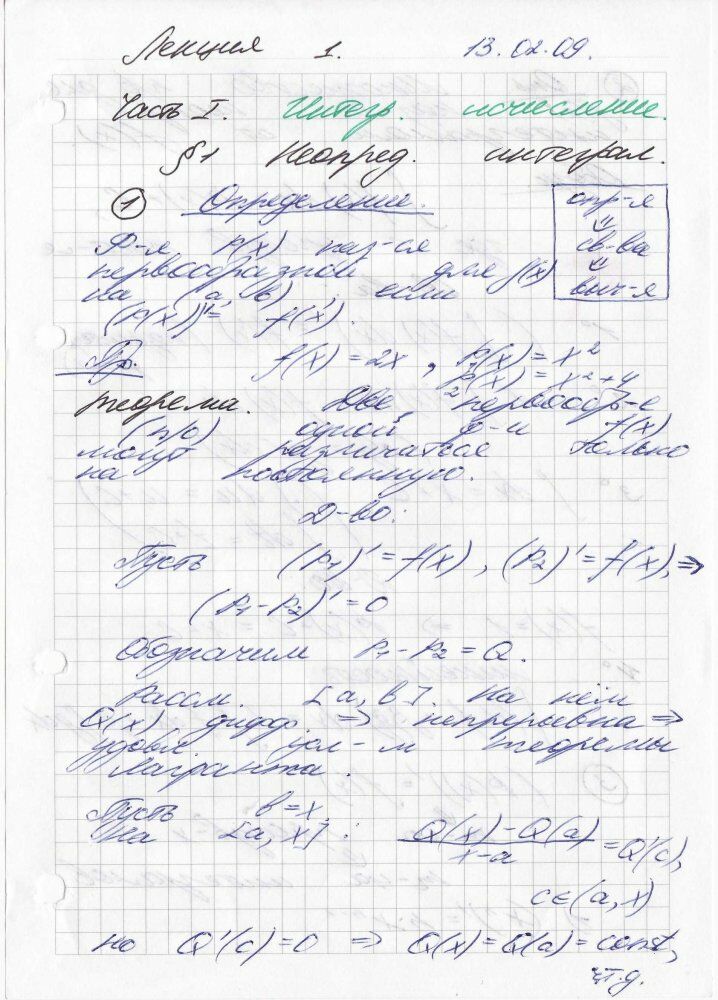 Лекция 1. 13.02.09.
Часть I. Интегр. исчисление.
§1 Неопред. интеграл.
① Определение.
опр-я
⇓
св-ва
⇓
выч-я
Ф-я F(x) наз-ся
первообразной для f(x)
на (a, b), если
(F(x))' = f(x).
Пр. f(x) = 2x, F₁(x) = x²
F₂(x) = x² + 4
Теорема. Две первообр-е
(п/о) одной ф-и f(x)
могут различаться только
на постоянную.
Д-во:
Пусть (F₁)' = f(x), (F₂)' = f(x), ⇒
(F₁ - F₂)' = 0
Обозначим F₁ - F₂ = Q.
Рассм. [a, b]. На нём
Q(x) дифф. ⇒ непрерывна ⇒
удовл. усл-м теоремы
Лагранжа.
Пусть b = x
На [a, x]: (Q(x) - Q(a))/(x - a) = Q'(c),
c ∈ (a, x)
но Q'(c) = 0 ⇒ Q(x) = Q(a) = const,
чт.д.